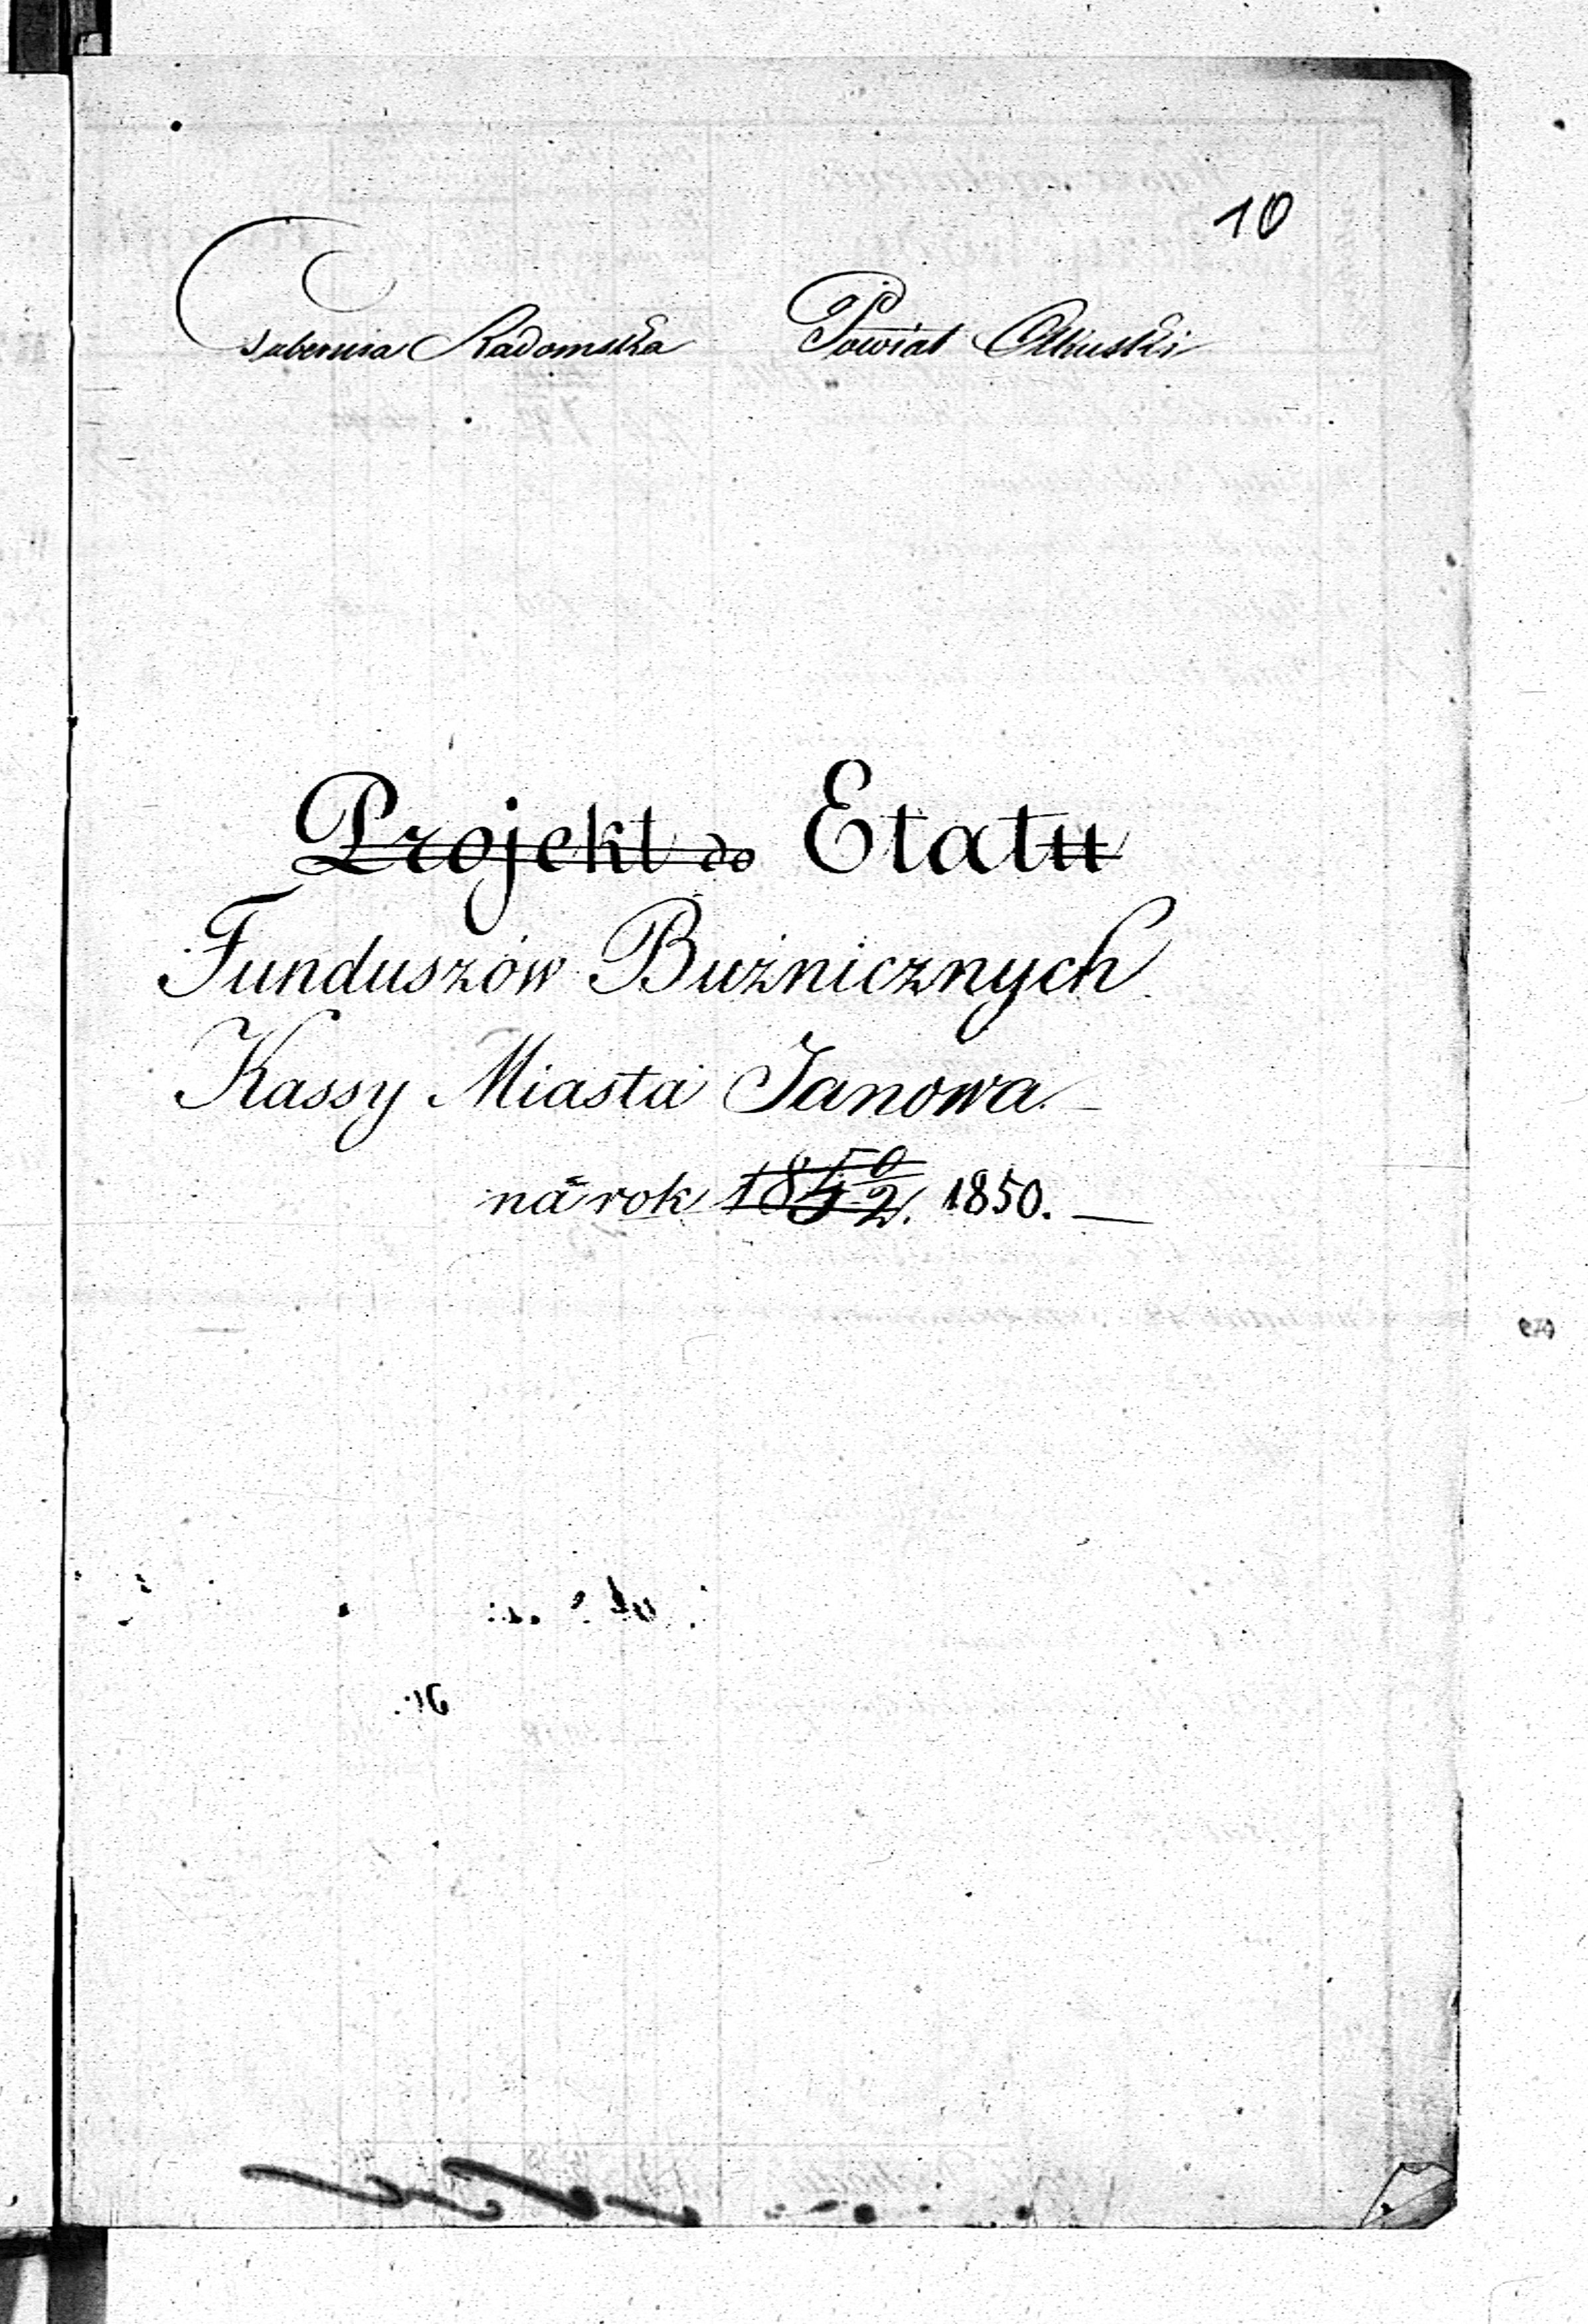 10
Gubernia Radomska Powiat Olkuski
Projekt do Etatu
Funduszów Buźnicznych
Kassy Miasta Janowa.
na rok 1850/2. 1850.